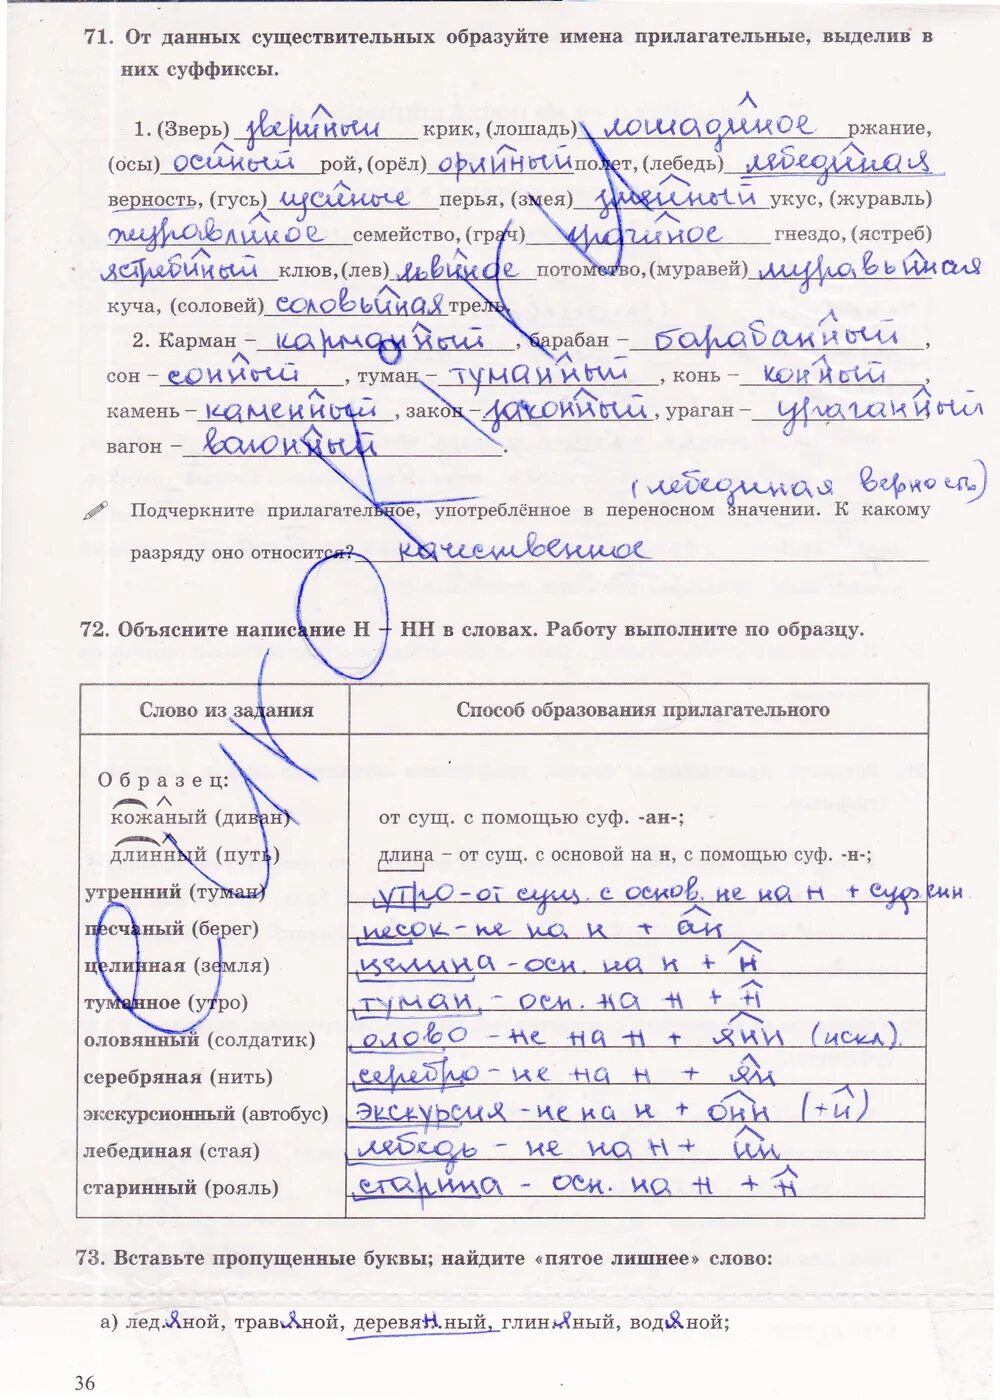 71. От данных существительных образуйте имена прилагательные, выделив в
них суффиксы.
1. (Зверь) звериный крик, (лошадь) лошадиное ржание,
(осы) осиный рой, (орёл) орлиный полет, (лебедь) лебединая
верность, (гусь) гусиные перья, (змея) змеиный укус, (журавль)
журавлиное семейство, (грач) грачиное гнездо, (ястреб)
ястребиный клюв, (лев) львиное потомство, (муравей) муравьиная
куча, (соловей) соловьиная трель.
2. Карман – карманный, барабан – барабанный,
сон – сонный, туман – туманный, конь – конный,
камень – каменный, закон – законный, ураган – ураганный
вагон – вагонный.
(лебединая верность)
Подчеркните прилагательное, употреблённое в переносном значении. К какому
разряду оно относится? качественное
72. Объясните написание Н – НН в словах. Работу выполните по образцу.
Слово из задания Способ образования прилагательного
Образец:
кожаный (диван) от сущ. с помощью суф. -ан-;
длинный (путь) длина – от сущ. с основой на н, с помощью суф. -н-;
утренний (туман) утро - от сущ. с основ. не на н + суф. енн
песчаный (берег) песок - не на н + ан
целинная (земля) целина - осн. на н + н
туманное (утро) туман - осн. на н + н
оловянный (солдатик) олово - не на н + янн (искл).
серебряная (нить) серебро - не на н + ян
экскурсионный (автобус) экскурсия - не на н + онн (+и)
лебединая (стая) лебедь - не на н + ин
старинный (рояль) старина - осн. на н + н
73. Вставьте пропущенные буквы; найдите «пятое лишнее» слово:
а) ледяной, травяной, деревянный, глиняный, водяной;
36